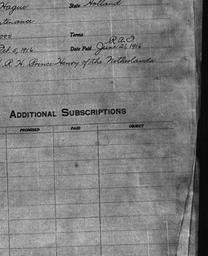 Hague State Holland
tenance
Terms R.A.F.
Oct. 5, 1916 Date Paid June 21, 1916
H. R. H. Prince Henry of the Netherlands
ADDITIONAL SUBSCRIPTIONS
PROMISED PAID OBJECT